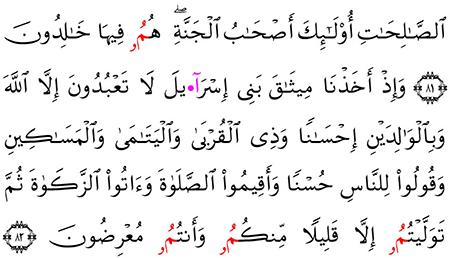 الصَّٰلِحَٰتِ أُوْلَٰٓئِكَ أَصْحَٰبُ الْجَنَّةِۖ هُمُۥ فِيهَا خَٰلِدُونَ
﴿٨١﴾ وَإِذْ أَخَذْنَا مِيثَٰقَ بَنِى إِسْرَآ•يلَ لَا تَعْبُدُونَ إِلَّا اللَّهَ
وَبِالْوَٰلِدَيْنِ إِحْسَٰنٗا وَذِى الْقُرْبَىٰ وَالْيَتَٰمَىٰ وَالْمَسَٰكِينِ
وَقُولُواْ لِلنَّاسِ حُسْنٗا وَأَقِيمُواْ الصَّلَوٰةَ وَءَاتُواْ الزَّكَوٰةَ ثُمَّ
تَوَلَّيْتُمُۥ إِلَّا قَلِيلٗا مِّنكُمُۥ وَأَنتُمُۥ مُعْرِضُونَ ﴿٨٢﴾